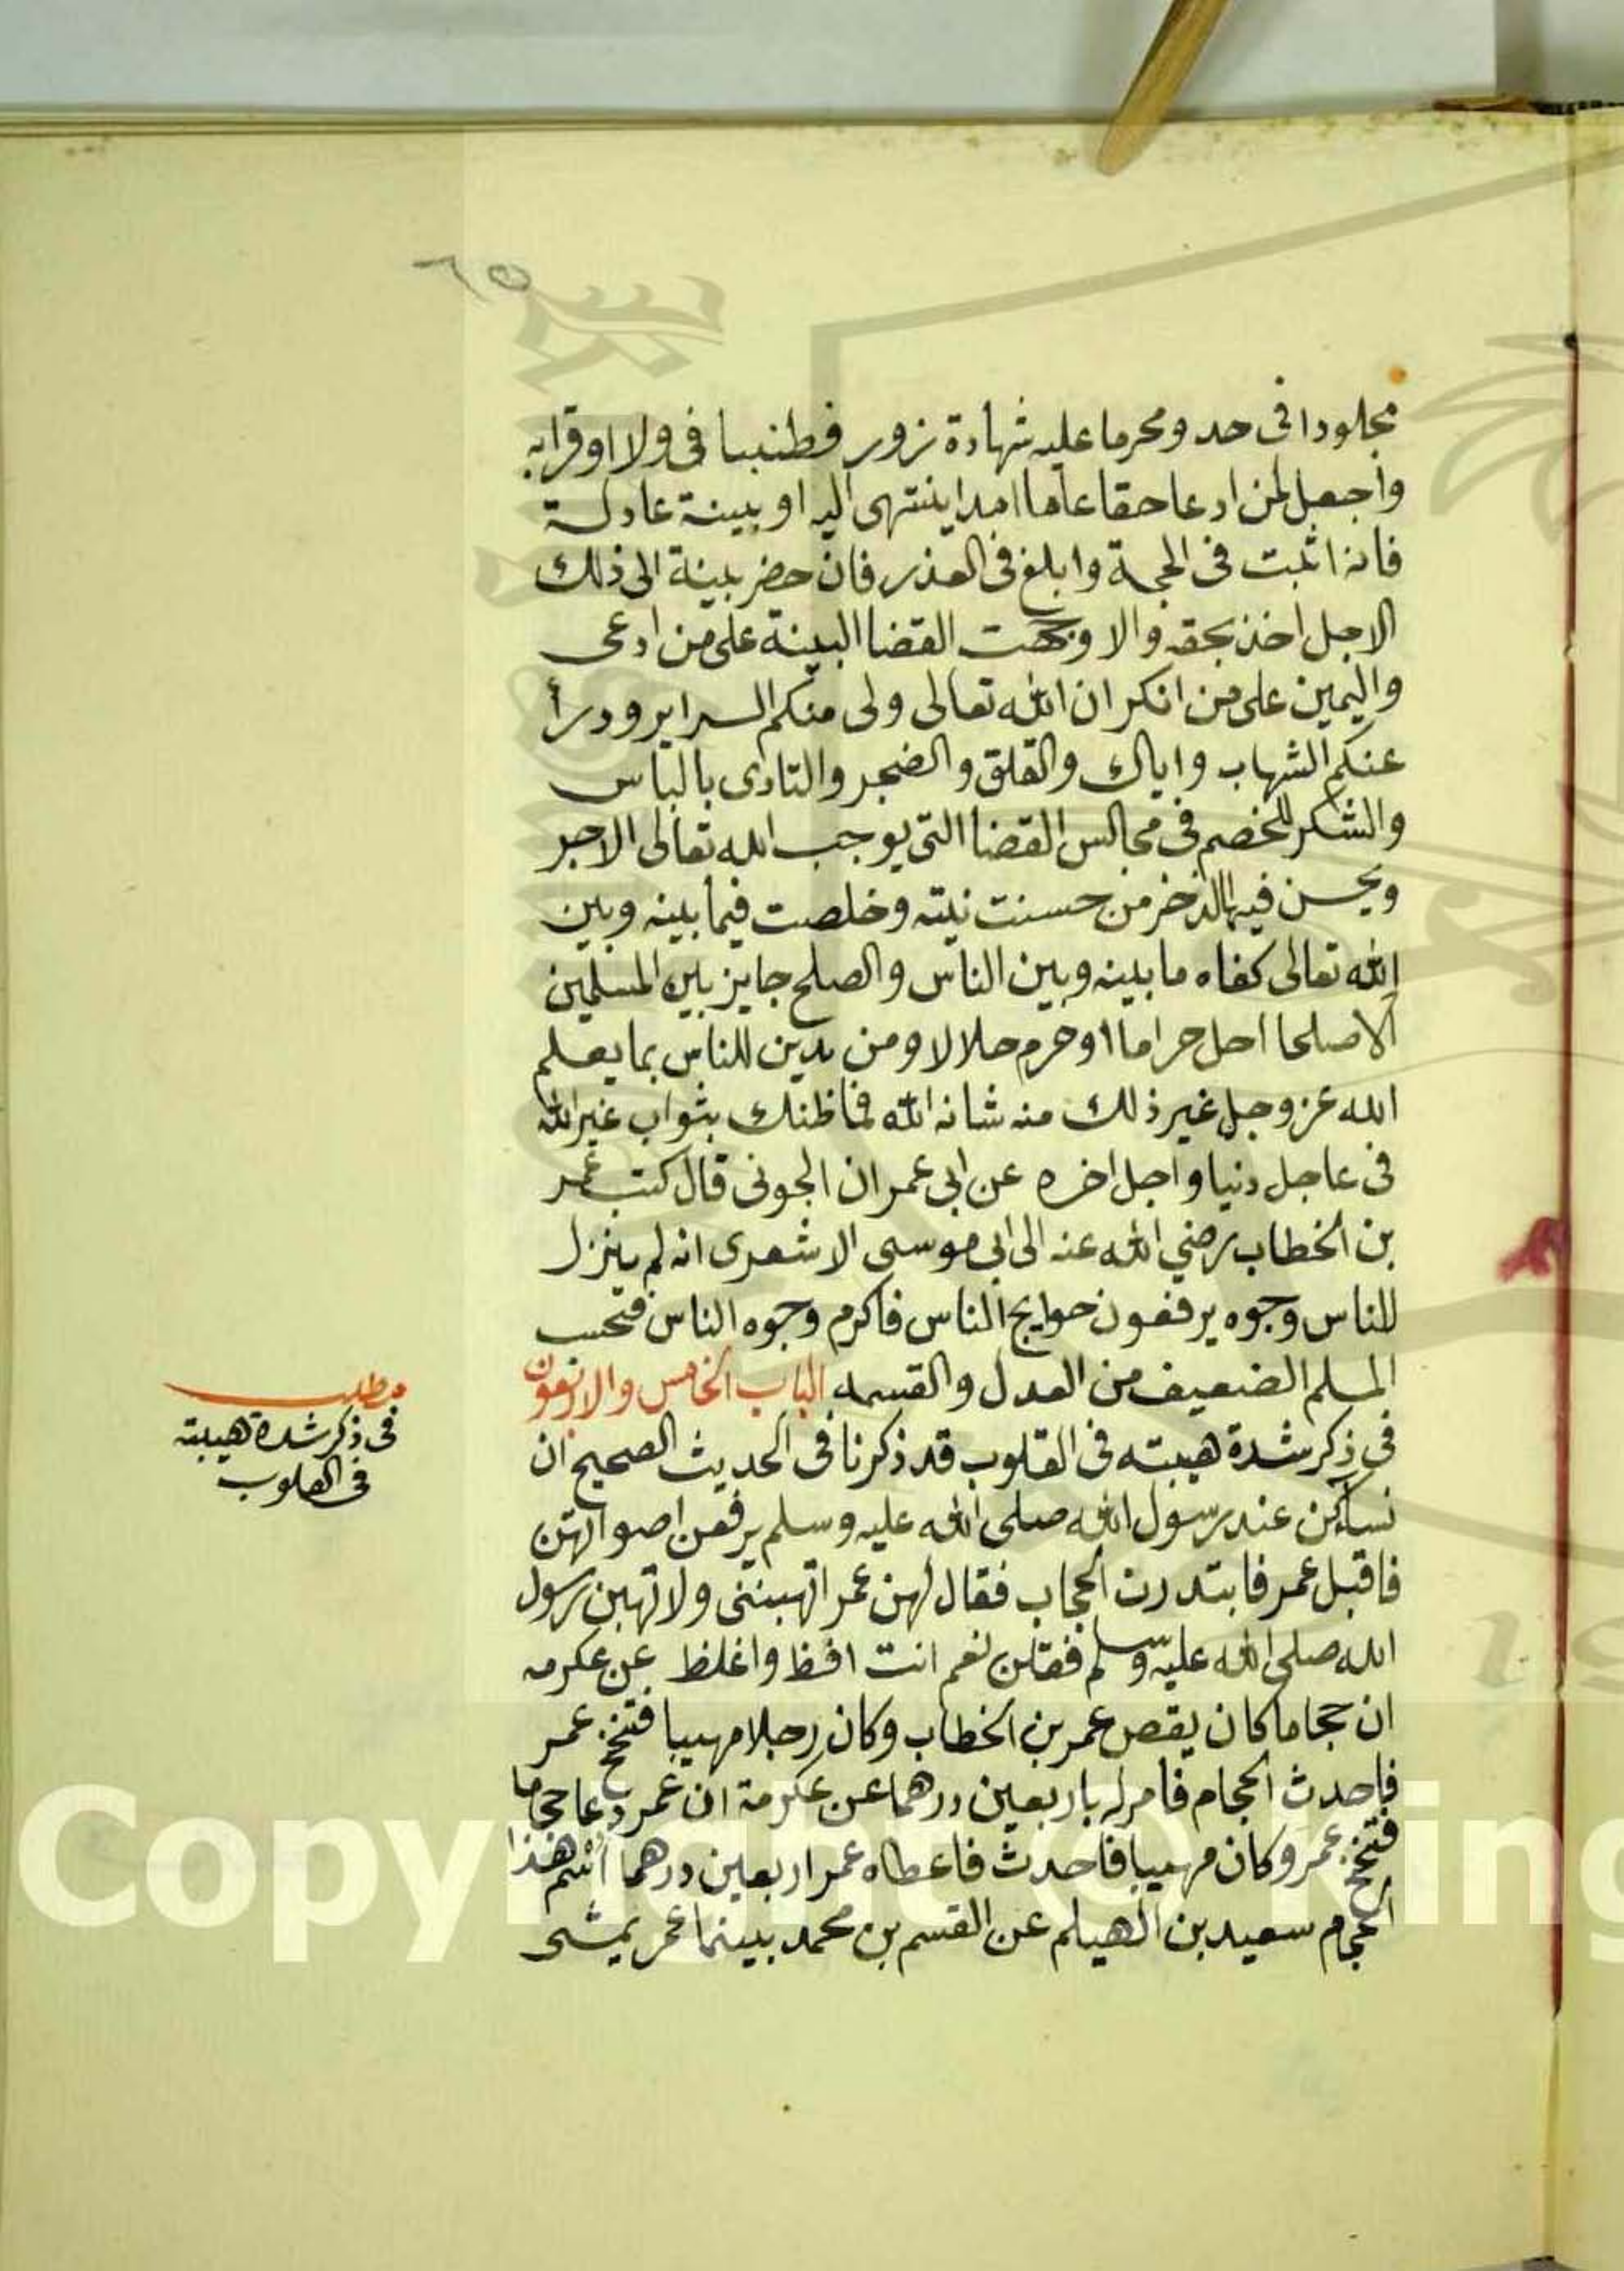 ٦٥
مجلودا فى حد ومحرما عليه شهادة زور فطنببا فى ولا اوقرابه
واجعل لمن ادعا حقا عاما امدا ينتهى اليه او ببينة عادلة
فانه اثبت فى الحجة وابلغ فى العذر فان حضر بينة الى ذلك
الاجل اخذ بحقه والا وجهت القضا البينة على من ادعى
واليمين على من انكر ان الله تعالى ولى منكم السراير ودرأ
عنكم الشهاب واياك والقلق والضجر والتادى بالباس
والشكر للخصم فى مجالس القضا التى يوجب الله تعالى الاجر
ويحسن فيها الذخر من حسنت نيته وخلصت فيما بينه وبين
الله تعالى كفاه ما بينه وبين الناس والصلح جايز بين المسلمين
الا صلحا احل حراما او حرم حلالا ومن يدين للناس بما يعلم
الله عز وجل غير ذلك منه شانه الله فما ظنك بثواب غير الله
فى عاجل دنيا واجل اخره عن ابى عمران الجونى قال كتب عمر
بن الخطاب رضي الله عنه الى ابى موسى الاشعرى انه لم ينزل
للناس وجوه يرفعون حوايج الناس فاكرم وجوه الناس فتحسب
المسلم الضعيف من العدل والقسمه الباب الخامس والاربعون
فى ذكر شدة هيبته فى القلوب قد ذكرنا فى الحديث الصحيح ان
نساكن عند رسول الله صلى الله عليه وسلم يرفعن اصواتهن
فاقبل عمر فابتدرن الحجاب فقال لهن عمر اتهبننى ولا تهبن رسول
الله صلى الله عليه وسلم فقلن نعم انت افظ واغلظ عن عكرمه
ان حجاما كان يقص عمر بن الخطاب وكان رجلا مهيبا فتنحنح عمر
فاحدث الحجام فامر له باربعين درهما عن عكرمة ان عمر دعا حجاما
فتنحنح عمر وكان مهيبا فاحدث فاعطاه عمر اربعين درهما اسم هذا
الحجام سعيد بن الهيلم عن القسم بن محمد بينما عمر يمشى
مطلب
فى ذكر شدة هيبته
فى القلوب
Copyright © King